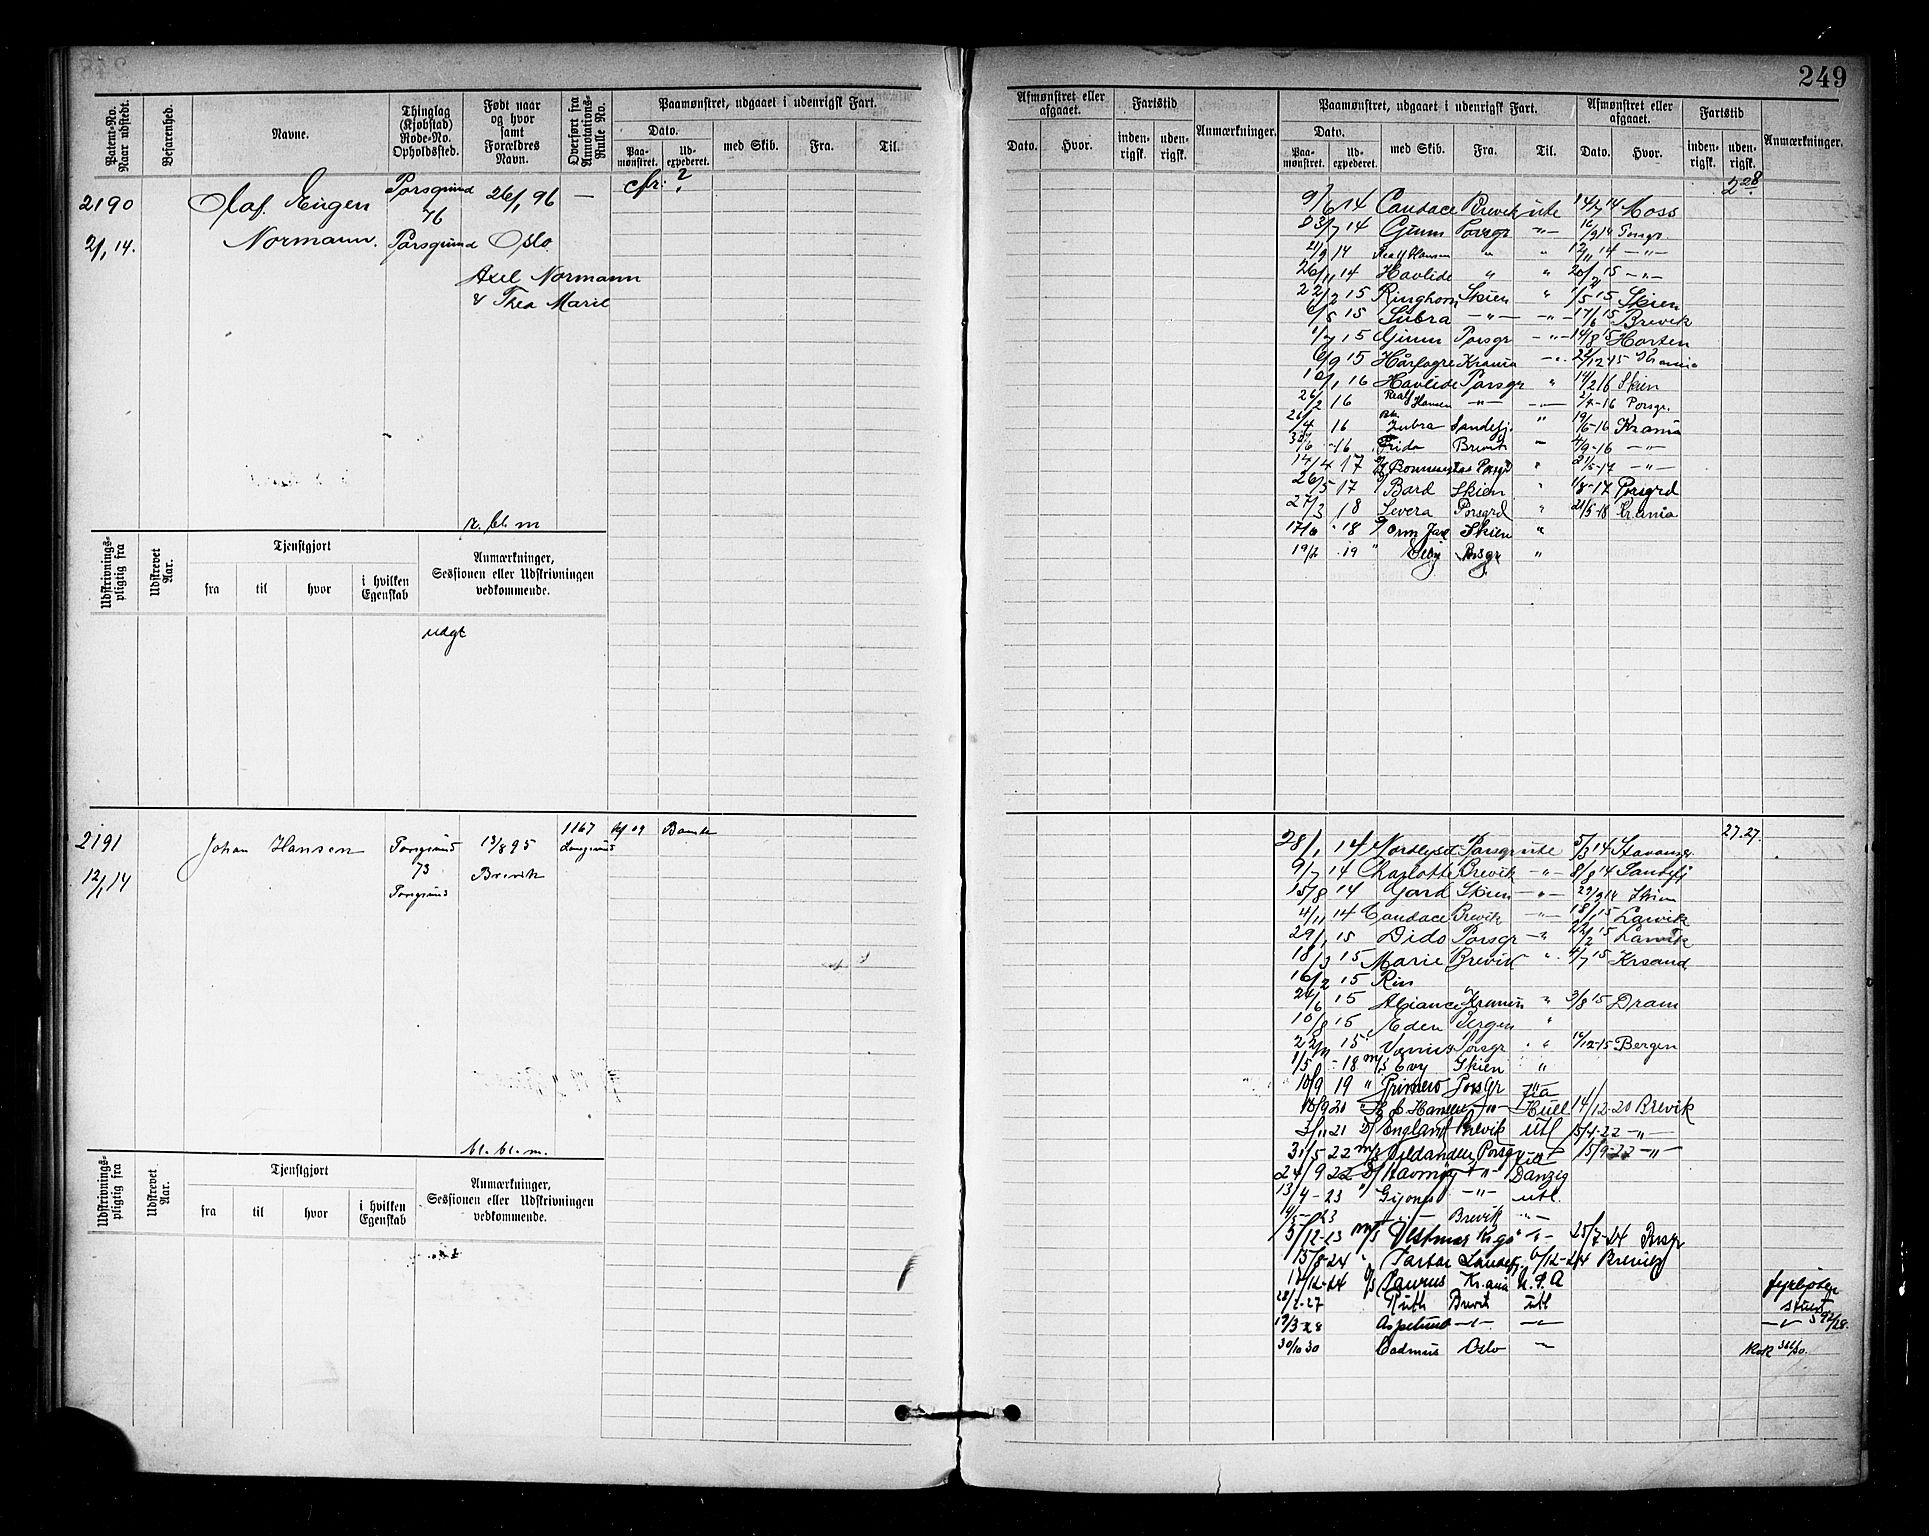 249
Patent-No. Naar udstedt.
Befarenhed.
Navne.
Thinglag (Kjøbstad) Rode-No. Opholdssted.
Født naar og hvor samt Forældres Navn.
Overført fra Annotations-Rulle No.
Paamønstret, udgaaet i udenrigsk Fart.
Dato.
Paa-mønstret.
Ud-expederet.
med Skib.
Fra.
Til.
Afmønstret eller afgaaet.
Dato.
Hvor.
Fartstid
inden-rigsk.
uden-rigsk.
Anmærkninger.
Paamønstret, udgaaet i udenrigsk Fart.
Dato.
Paa-mønstret.
Ud-expederet.
med Skib.
Fra.
Til.
Afmønstret eller afgaaet.
Dato.
Hvor.
Fartstid
inden-rigsk.
uden-rigsk.
Anmærkninger.
2190
2/1 14.
Olaf Eugen
Normann.
Porsgrund
76
Porsgrund
26/1 96
Oslo
Axel Normann
& Thea Marie
—
cfr: ?
2 28
9/6 14 Candace Brevik ute 14/7 14 Moss
23/7 14 Gunn Porsgr —"— 16/9 14 Porsgr.
21/9 14 Realf Hansen " " 12/11 14 —"—
26/11 14 Havlide " " 20/2 15 —"—
22/2 15 Ringhorn Skien " 1/5 15 Skien
6/5 15 Subra —"— —"— 17/6 15 Brevik
1/7 15 Gunn Porsgr —"— 14/8 15 Horten
6/9 15 Hårfagre Krania —"— 24/12 15 Krania
10/1 16 Havlide Porsgr " 14/2 16 Skien
26/2 16 Realf Hansen —"— —"— 2/4-16 Porsgr.
26/4 16 Zubra Sandefj. " 19/6-16 Krania
30/6 -16 Frida Brevik — 4/9-16 —"—
14/4 17 Porsgr " 21/5-17 —"—
26/5 17 Bard Skien " 1/8-17 Porsgrd
27/3 18 Severa Porsgrd " 21/5-18 Krania
17/6 -18 Orm Jarl Skien "
19/2 -19 " Porsgr "
n. bl. m
Udskrivnings-pligtig fra
Udskrevet Aar.
Tjenstgjort
fra
til
hvor
i hvilken Egenskab
Anmærkninger, Sessionen eller Udskrivningen vedkommende.
udgt
2191
12/1 14
Johan Hansen
Porsgrund
73
Porsgrund
13/8 95
Brevik
1167
Langesund
09 Bamble
27.27.
28/1 14 Nordlyset Porsgr ute 5/3 14 Stavanger
9/7 14 Charlotte Brevik —"— 8/8 14 Sandefj
15/8 14 Gard Skien —"— 29/9 14 Skien
4/11 14 Candace Brevik —"— 18/1 15 Larvik
29/1 15 Dido Porsgr —"— 24/2 15 Larvik
18/3 15 Marie Brevik " 4/7 15 Krsand
16/2 15 Rin
24/6 15 Aliance Krania " 3/8 15 Dram
10/8 15 Eden Bergen "
22/11 15 Venus Porsgr " 14/12-15 Bergen
1/5 -18 m/s Evy Skien "
10/9 19 " Primero Porsgr
18/9 20 " H. C. Hansen —"— Huel 14/12-20 Brevik
3/11 21 D/s England Brevik utl 15/4-22 —"—
31/5 22 m/s Vildanden Porsgr utl 15/9-22 —"—
24/9 22 D/s Havmøy —"— Danzig
13/4-23 " Gijones —"— utl.
—"— Brevik —"—
5/12-23 m/s Vestmar Kr.gs —"— 25/7-24 Porsgr
15/8-24 " Tartar Sandefj. 6/12-24 Brevik
12/12-24 D/s Taurus Kr.ania U.S.A fyrbøter
28/2-27 Ruth Brevik utl stuert
19/3-28 Aspelund —"— —"— —"— 592/28.
30/10 30 Cadmus Oslo — Kok 366/30.
bl. bl. m.
Udskrivnings-pligtig fra
Udskrevet Aar.
Tjenstgjort
fra
til
hvor
i hvilken Egenskab
Anmærkninger, Sessionen eller Udskrivningen vedkommende.